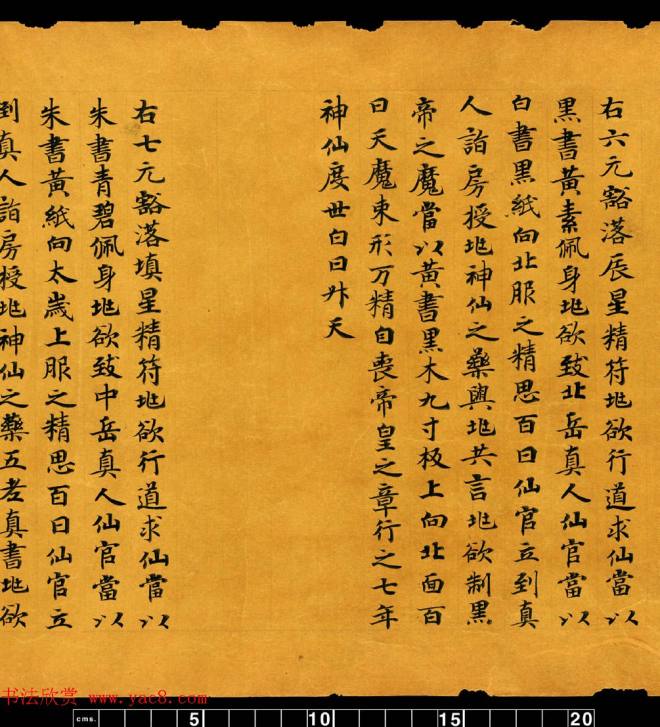 右六元豁落辰星精符地欲行道求仙當以
黑書黃素佩身地欲致北岳真人仙官當以
白書黑紙向北服之精思百日仙官立到真
人詣房授地神仙之藥與地共言地欲制黑
帝之魔當以黃書黑木九寸板上向北面百
日天魔束形万精自喪帝皇之章行之七年
神仙度世白日升天
右七元豁落填星精符地欲行道求仙當以
朱書青碧佩身地欲致中岳真人仙官當以
朱書黃紙向太歲上服之精思百日仙官立
到真人詣房授地神仙之藥五老真書地欲
书法欣赏 www.yac8.com
cms. 5 10 15 20